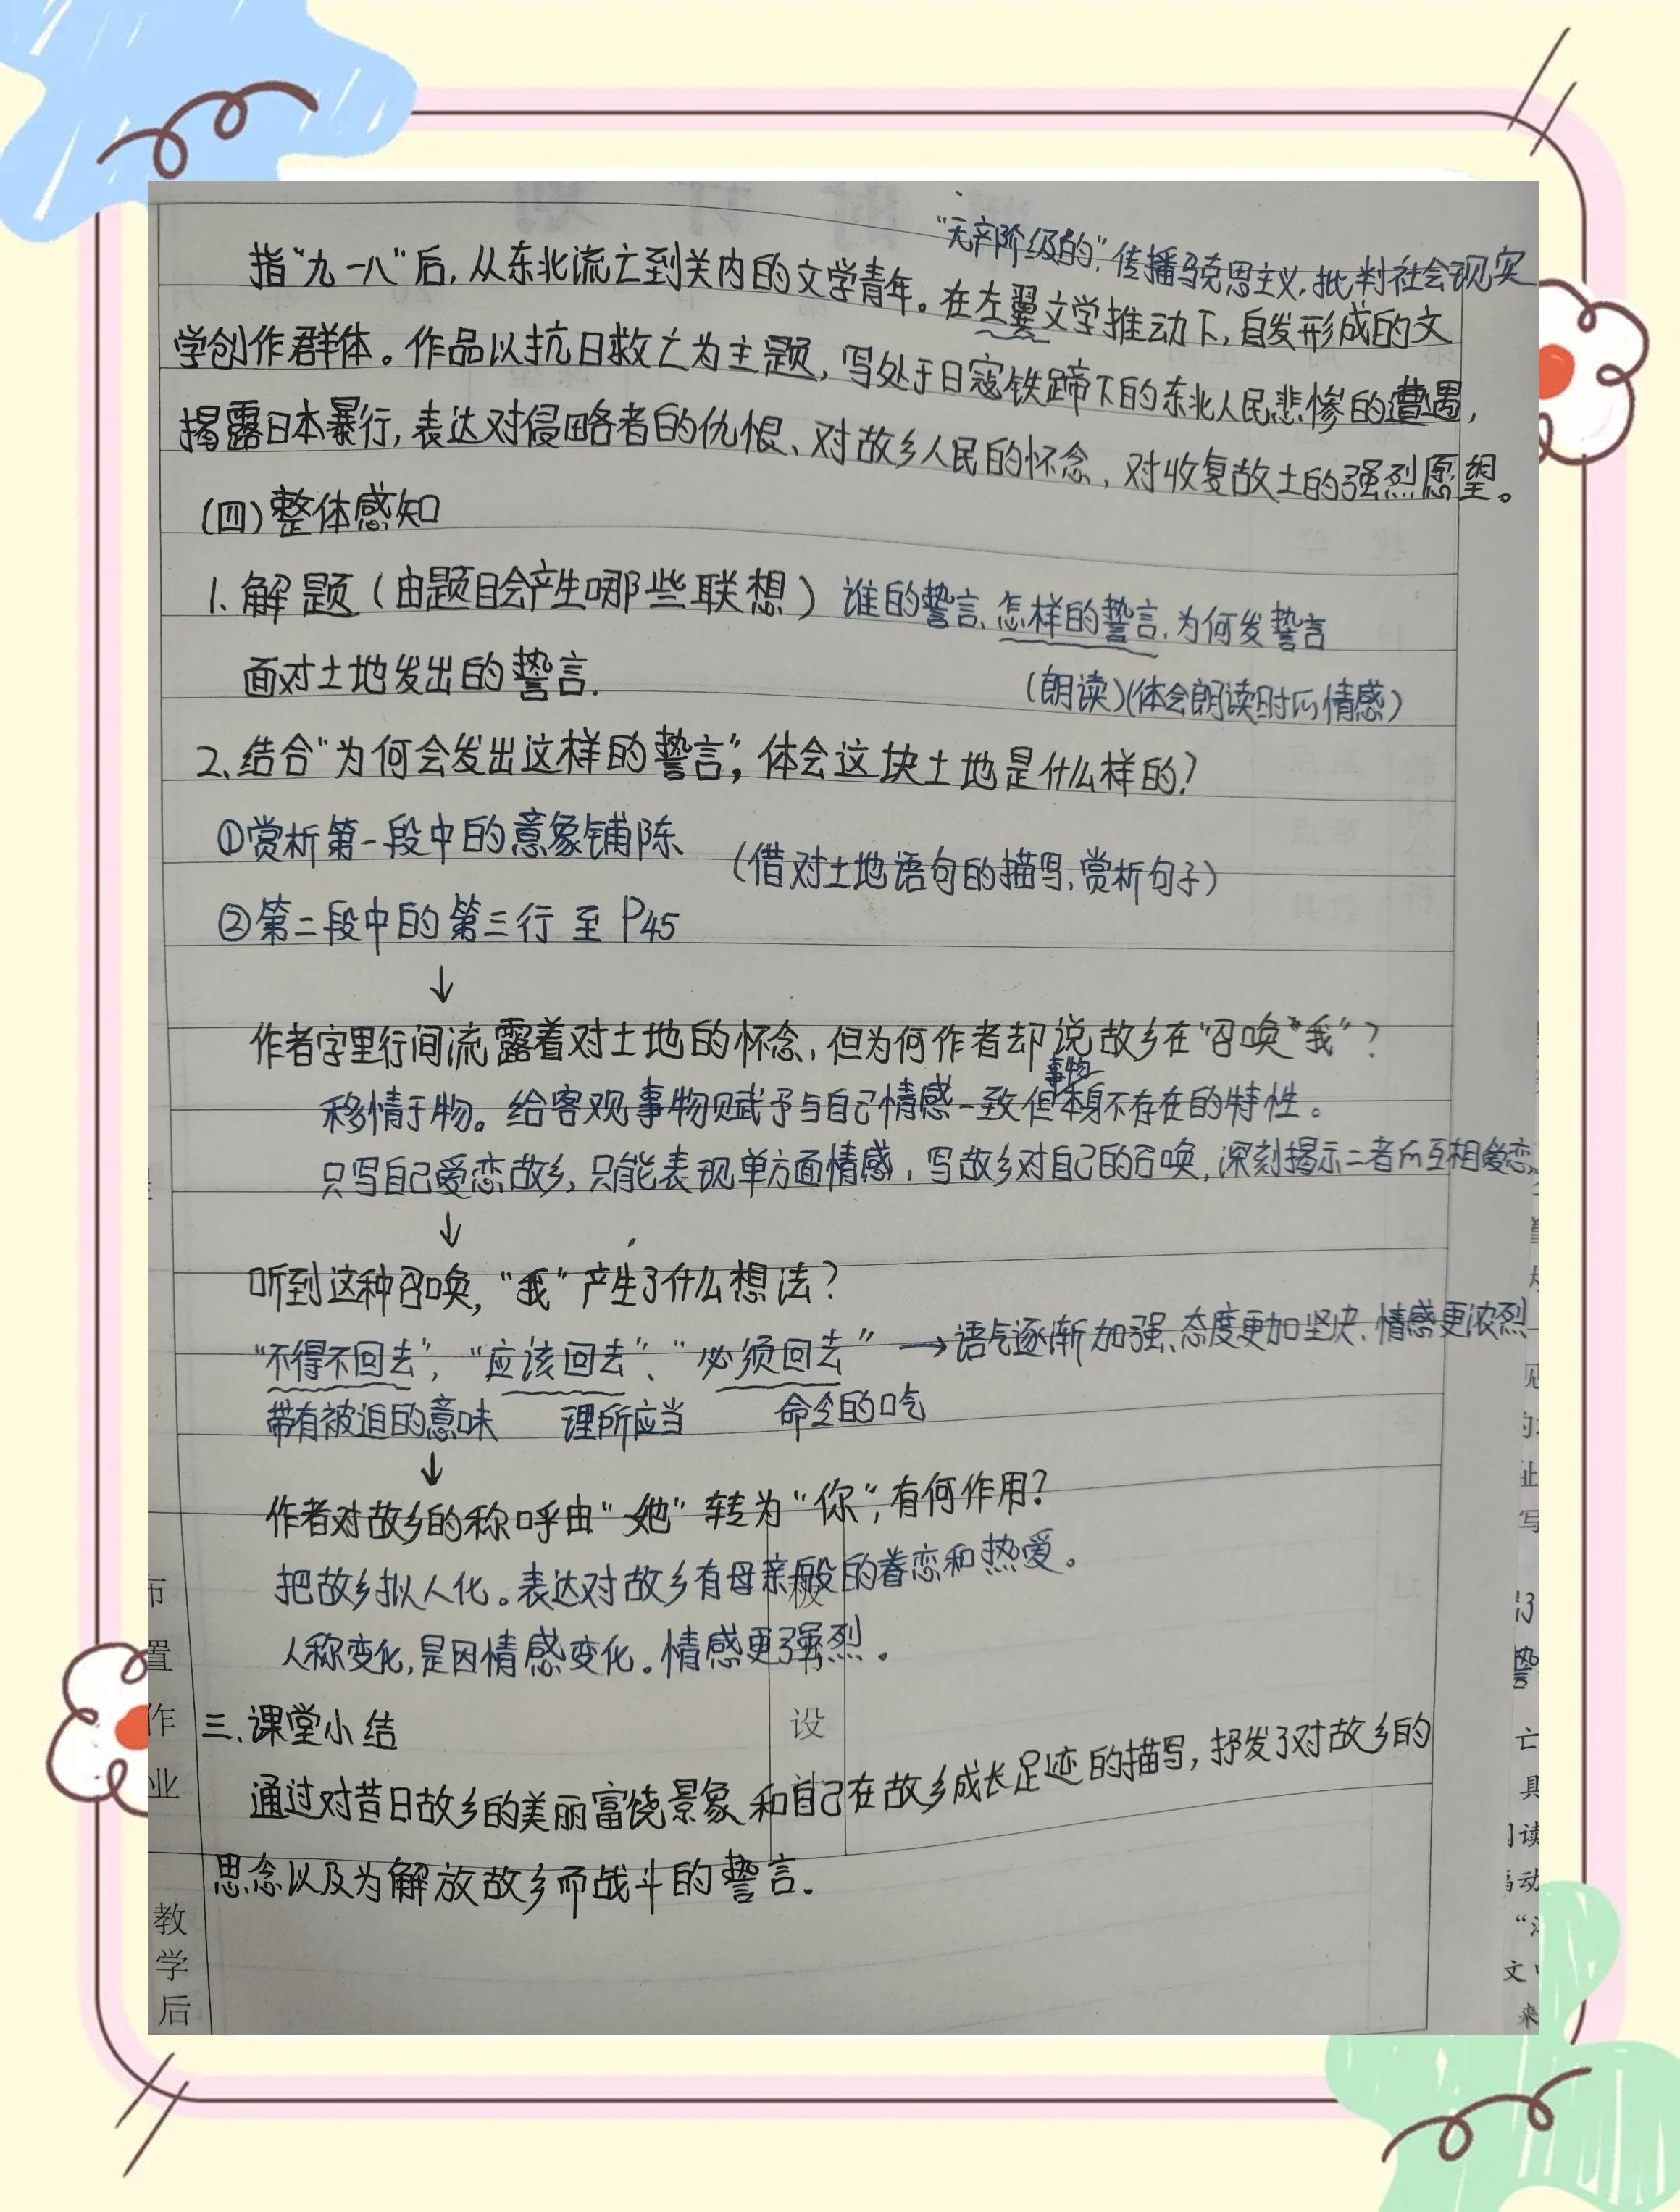 "无产阶级的",传播马克思主义,批判社会现实
指"九一八"后,从东北流亡到关内的文学青年。在左翼文学推动下,自发形成的文
学创作群体。作品以抗日救亡为主题,写处于日寇铁蹄下的东北人民悲惨的遭遇,
揭露日本暴行,表达对侵略者的仇恨、对故乡人民的怀念,对收复故土的强烈愿望。
(四)整体感知
1.解题(由题目会产生哪些联想)谁的誓言、怎样的誓言、为何发誓言
面对土地发出的誓言.
(朗读)(体会朗读时的情感)
2、结合"为何会发出这样的誓言",体会这块土地是什么样的?
①赏析第一段中的意象铺陈
(借对土地语句的描写,赏析句子)
②第二段中的第三行至P45
↓
作者字里行间流露着对土地的怀念,但为何作者却说故乡在"召唤"我"?
事物
移情于物。给客观事物赋予与自己情感一致但本身不存在的特性。
只写自己爱恋故乡,只能表现单方面情感,写故乡对自己的召唤,深刻揭示二者的互相爱恋
↓
听到这种召唤,"我"产生了什么想法?
"不得不回去","应该回去"、"必须回去"→语气逐渐加强、态度更加坚决、情感更浓烈
带有被迫的意味 理所应当 命令的口吃
↓
作者对故乡的称呼由"她"转为"你",有何作用?
把故乡拟人化。表达对故乡有母亲般的眷恋和热爱。
人称变化,是因情感变化。情感更强烈。
三.课堂小结
通过对昔日故乡的美丽富饶景象和自己在故乡成长足迹的描写,抒发了对故乡的
思念以及为解放故乡而战斗的誓言.
布置作业
设
教学后